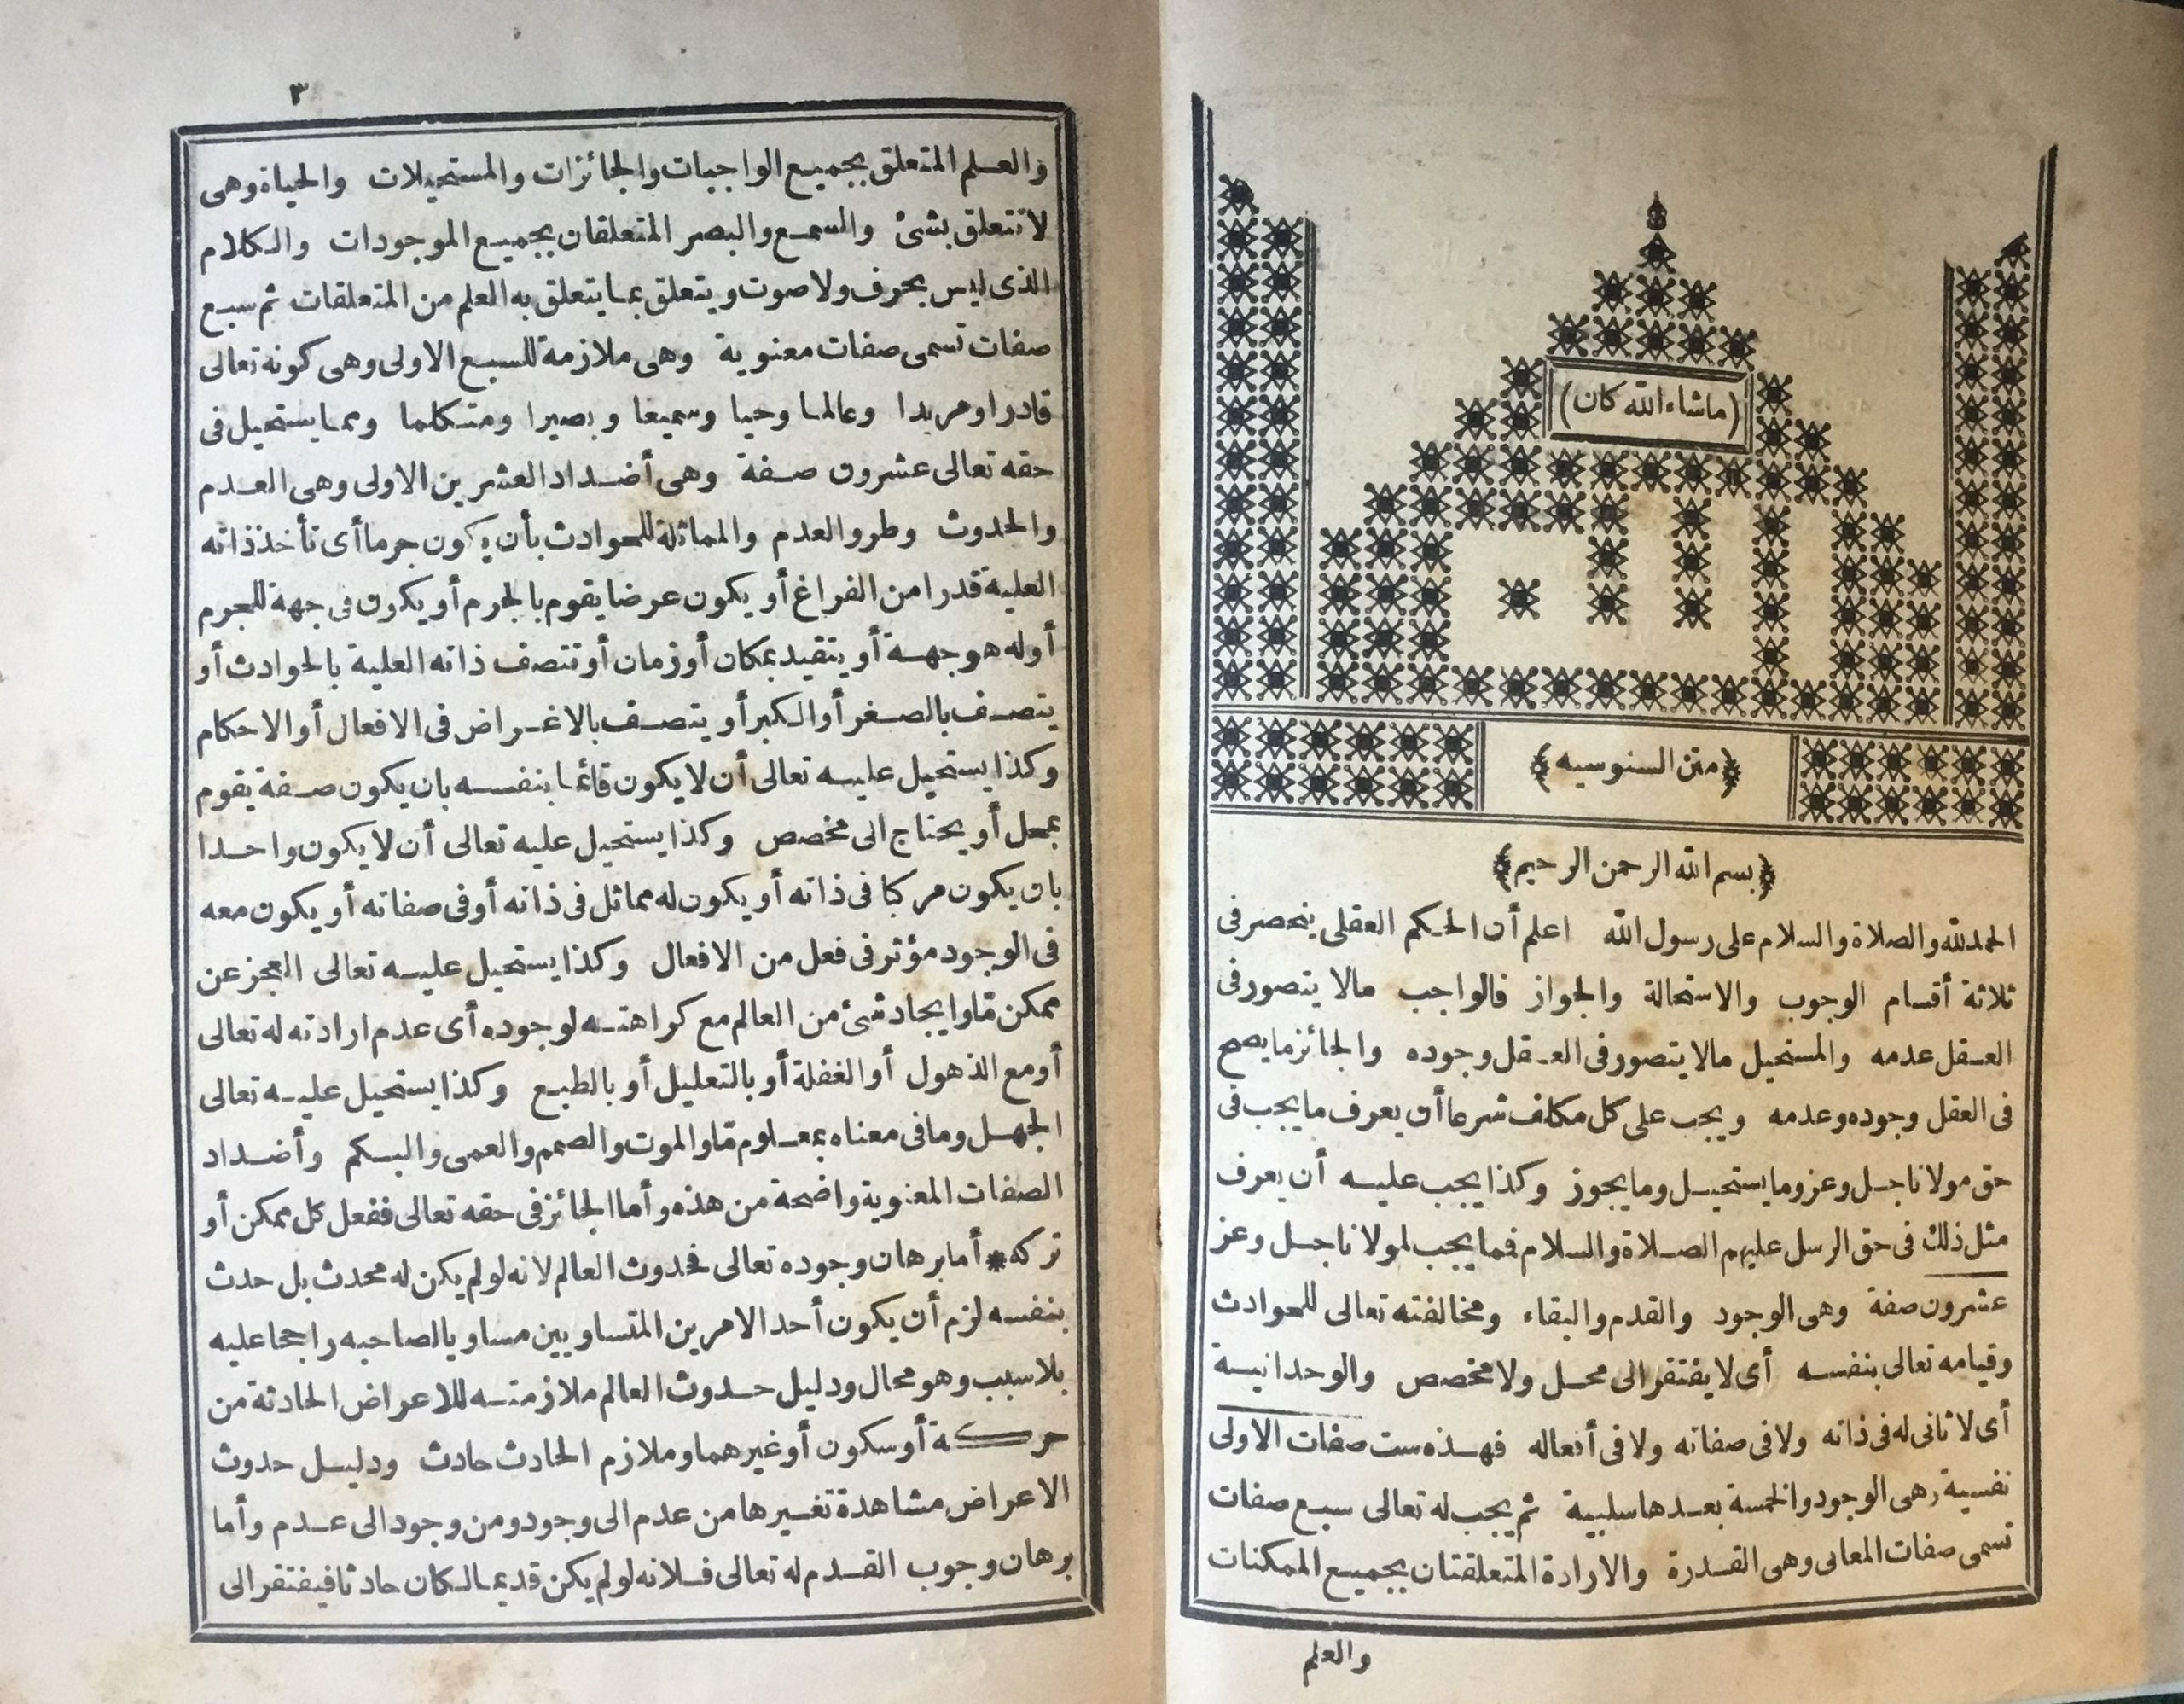 (ماشاء الله كان)
﴿متن السنوسيه﴾
﴿بسم الله الرحمن الرحيم﴾
الحمد لله والصلاة والسلام على رسول الله اعلم أن الحكم العقلى ينحصر فى
ثلاثة أقسام الوجوب والاستحالة والجواز فالواجب مالا يتصور فى
العقل عدمه والمستحيل مالا يتصور فى العقل وجوده والجائز ما يصح
فى العقل وجوده وعدمه ويجب على كل مكلف شرعا أن يعرف ما يجب فى
حق مولانا جل وعز وما يستحيل وما يجوز وكذا يجب عليه أن يعرف
مثل ذلك فى حق الرسل عليهم الصلاة والسلام فمما يجب لمولانا جل وعز
عشرون صفة وهى الوجود والقدم والبقاء ومخالفته تعالى للحوادث
وقيامه تعالى بنفسه أى لا يفتقر الى محل ولا مخصص والوحدانية
أى لا ثانى له فى ذاته ولا فى صفاته ولا فى أفعاله فهذه ست صفات الاولى
نفسية وهى الوجود والخمسة بعدها سلبية ثم يجب له تعالى سبع صفات
تسمى صفات المعانى وهى القدرة والارادة المتعلقتان بجميع الممكنات
والعلم
٣
والعلم المتعلق بجميع الواجبات والجائزات والمستحيلات والحياة وهى
لا تتعلق بشئ والسمع والبصر المتعلقان بجميع الموجودات والكلام
الذى ليس بحرف ولا صوت ويتعلق بما يتعلق به العلم من المتعلقات ثم سبع
صفات تسمى صفات معنوية وهى ملازمة للسبع الاولى وهى كونه تعالى
قادرا ومريدا وعالما وحيا وسميعا وبصيرا ومتكلما ومما يستحيل فى
حقه تعالى عشرون صفة وهى أضداد العشرين الاولى وهى العدم
والحدوث وطرو العدم والمماثلة للحوادث بأن يكون جرما أى تأخذ ذاته
العلية قدرا من الفراغ أو يكون عرضا يقوم بالجرم أو يكون فى جهة للجرم
أوله هو جهة أو يتقيد بمكان أو زمان أو تتصف ذاته العلية بالحوادث أو
يتصف بالصغر أو الكبر أو يتصف بالاغراض فى الافعال أو الاحكام
وكذا يستحيل عليه تعالى أن لا يكون قائما بنفسه بان يكون صفة يقوم
بمحل أو يحتاج الى مخصص وكذا يستحيل عليه تعالى أن لا يكون واحدا
بان يكون مركبا فى ذاته أو يكون له مماثل فى ذاته أو فى صفاته أو يكون معه
فى الوجود مؤثر فى فعل من الافعال وكذا يستحيل عليه تعالى العجز عن
ممكن ما وايجاد شئ من العالم مع كراهته لوجوده أى عدم ارادته له تعالى
أو مع الذهول أو الغفلة أو بالتعليل أو بالطبع وكذا يستحيل عليه تعالى
الجهل وما فى معناه بمعلوم ما والموت والصمم والعمى والبكم وأضداد
الصفات المعنوية واضحة من هذه وأما الجائز فى حقه تعالى ففعل كل ممكن أو
تركه * أما برهان وجوده تعالى فحدوث العالم لانه لو لم يكن له محدث بل حدث
بنفسه لزم أن يكون أحد الامرين المتساويين مساويا لصاحبه راجحا عليه
بلا سبب وهو محال ودليل حدوث العالم ملازمته للاعراض الحادثة من
حركة أو سكون أو غيرهما وملازم الحادث حادث ودليل حدوث
الاعراض مشاهدة تغيرها من عدم الى وجود ومن وجود الى عدم وأما
برهان وجوب القدم له تعالى فلانه لو لم يكن قديما لكان حادثا فيفتقر الى